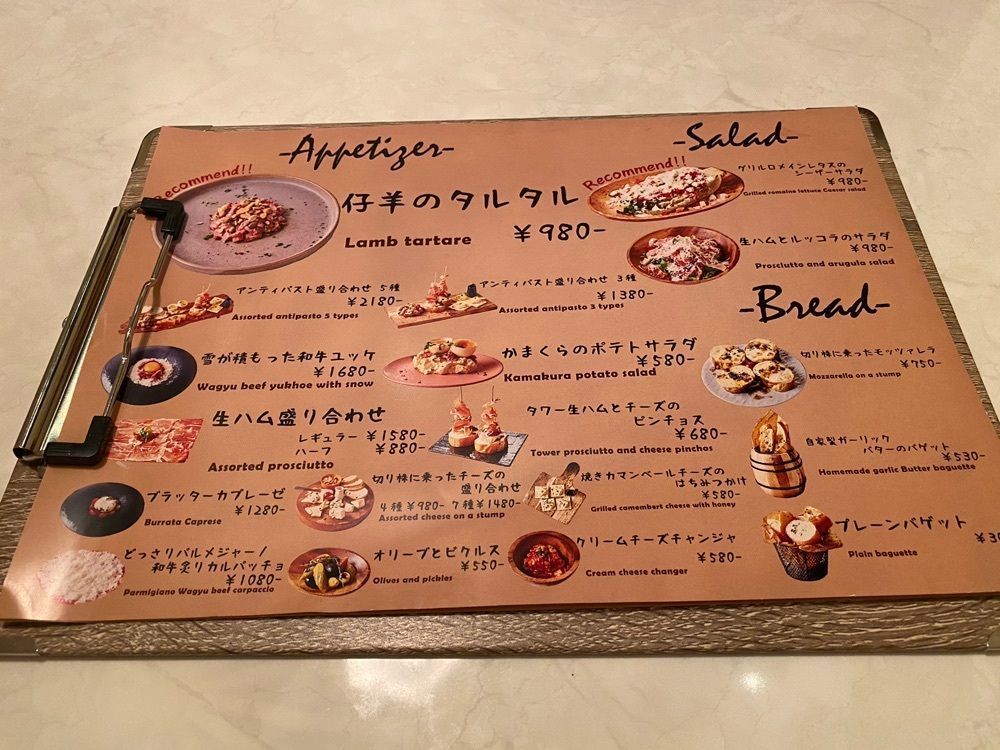 -Appetizer-
Recommend!!
仔羊のタルタル
Lamb tartare
¥980-
アンティパスト盛り合わせ 5種
¥2180-
Assorted antipasto 5 types
アンティパスト盛り合わせ 3種
¥1380-
Assorted antipasto 3 types
雪が積もった和牛ユッケ
¥1680-
Wagyu beef yukhoe with snow
かまくらのポテトサラダ
¥580-
Kamakura potato salad
生ハム盛り合わせ
レギュラー ¥1580-
ハーフ ¥880-
Assorted prosciutto
タワー生ハムとチーズの
ピンチョス
¥680-
Tower prosciutto and cheese pinchos
ブラッターカプレーゼ
¥1280-
Burrata Caprese
切り株に乗ったチーズの
盛り合わせ
4種¥980- 7種¥1480-
Assorted cheese on a stump
焼きカマンベールチーズの
はちみつかけ
¥580-
Grilled camembert cheese with honey
どっさりパルメジャーノ
和牛炙りカルパッチョ
¥1080-
Parmigiano Wagyu beef carpaccio
オリーブとピクルス
¥550-
Olives and pickles
クリームチーズチャンジャ
¥580-
Cream cheese changer
-Salad-
Recommend!!
グリルロメインレタスの
シーザーサラダ
¥980-
Grilled romaine lettuce Caesar salad
生ハムとルッコラのサラダ
¥980-
Prosciutto and arugula salad
-Bread-
切り株に乗ったモッツァレラ
¥750-
Mozzarella on a stump
自家製ガーリック
バターのバゲット
¥530-
Homemade garlic Butter baguette
プレーンバゲット
Plain baguette